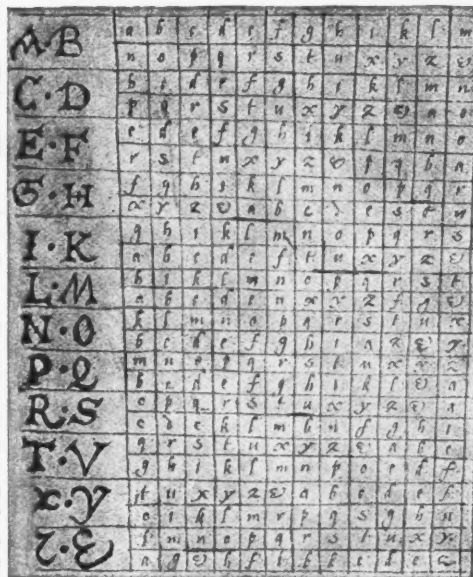 A·B a b c d e f g h i k l m
n o p q r s t u x y z &
C·D b c d e f g h i k l m n
p q r s t u x y z & a o
E·F c d e f g h i k l m n o
r s t u x y z & p q b a
G·H f g h i k l m n o p q r
x y z & a b c d e s t u
I·K g h i k l m n o p q r s
a b c d e f t u x y z &
L·M h i k l m n o p q r s t
a b c d e u x y z f g &
N·O k l m n o p q r s t u x
b c d e f g h i a z & y
P·Q m n o p q r s t u x y z
b c d e f g h i k l & a
R·S o p q r s t u x y z & a
c d e k l m b n f g h i
T·V q r s t u x y z & a b c
g h i k l m n p o e d f
x·y t u x y z & a b c d e f
o i k l m r p q s g h n
z·& l m n o p q r s t u x y
a g & h f i b k c d e z